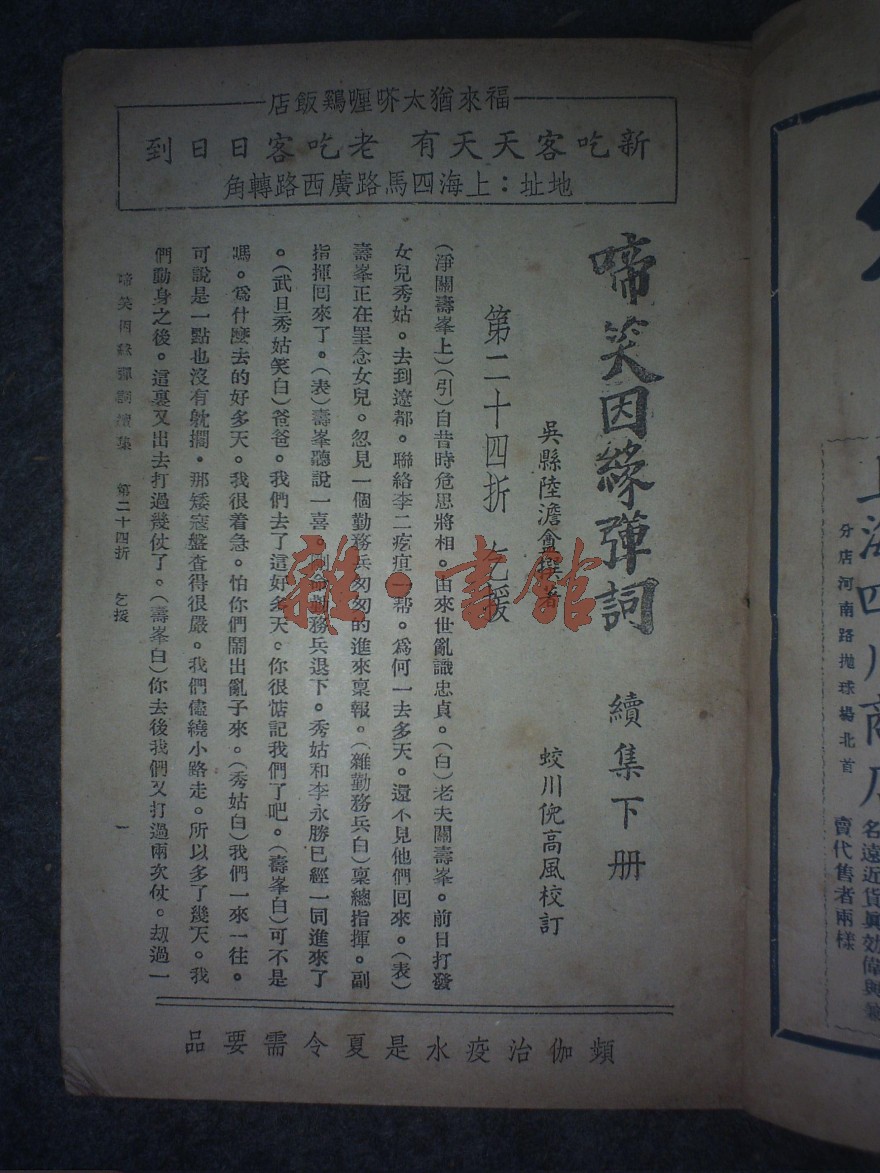 福來猶太咖喱鷄飯店
新吃客天天有 老吃客日日到
地址：上海四馬路廣西路轉角
啼笑因緣彈詞 續集下册
吳縣陸澹盦撰著 蛟川倪高風校訂
第二十四折 乞援
(淨關壽峯上)(引)自昔時危思將相。由來世亂識忠貞。(白)老夫關壽峯。前日打發
女兒秀姑。去到遼都。聯絡李二疙疸一帮。爲何一去多天。還不見他們回來。(表)
壽峯正在罣念女兒。忽見一個勤務兵匆匆的進來禀報。(雜勤務兵白)禀總指揮。副
指揮回來了。(表)壽峯聽說一喜。勤務兵退下。秀姑和李永勝已經一同進來了
。(武旦秀姑笑白)爸爸。我們去了這好多天。你很惦記我們了吧。(壽峯白)可不是
嗎。爲什麼去的好多天。我很着急。怕你們鬧出亂子來。(秀姑白)我們一來一往。
可說是一點也沒有躭擱。那矮寇盤查得很嚴。我們儘繞小路走。所以多了幾天。我
們動身之後。這裏又出去打過幾仗了。(壽峯白)你去後我們又打過兩次仗。刼過一
啼笑因緣彈詞續集 第二十四折 乞援 一
頻伽治疫水是夏令需要品
雜·書館
上海四川商店
分店河南路抛球場北首
名遠近貨眞効偉與
賣代售者兩樣